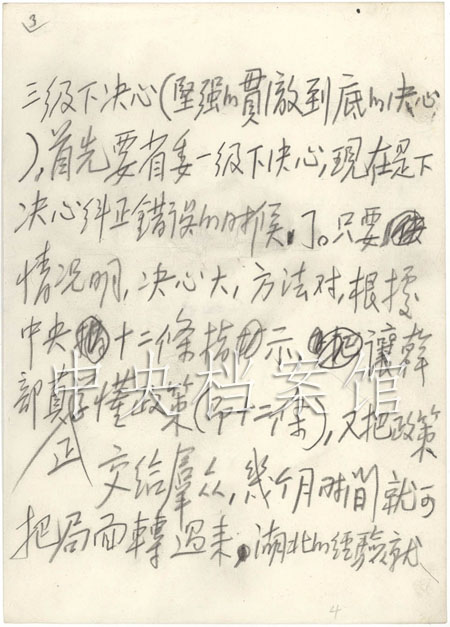 3
三级下决心(堅强的貫澈到底的决心
),首先要省委一级下决心,現在是下
决心纠正錯误的时候了。只要
情况明,决心大,方法对,根據
中央十二條指示,讓幹
部真正懂政策(即十二條),又把政策
交给羣众,幾个月时间就可
把局面轉过来,湖北的经驗就
中央档案馆
4